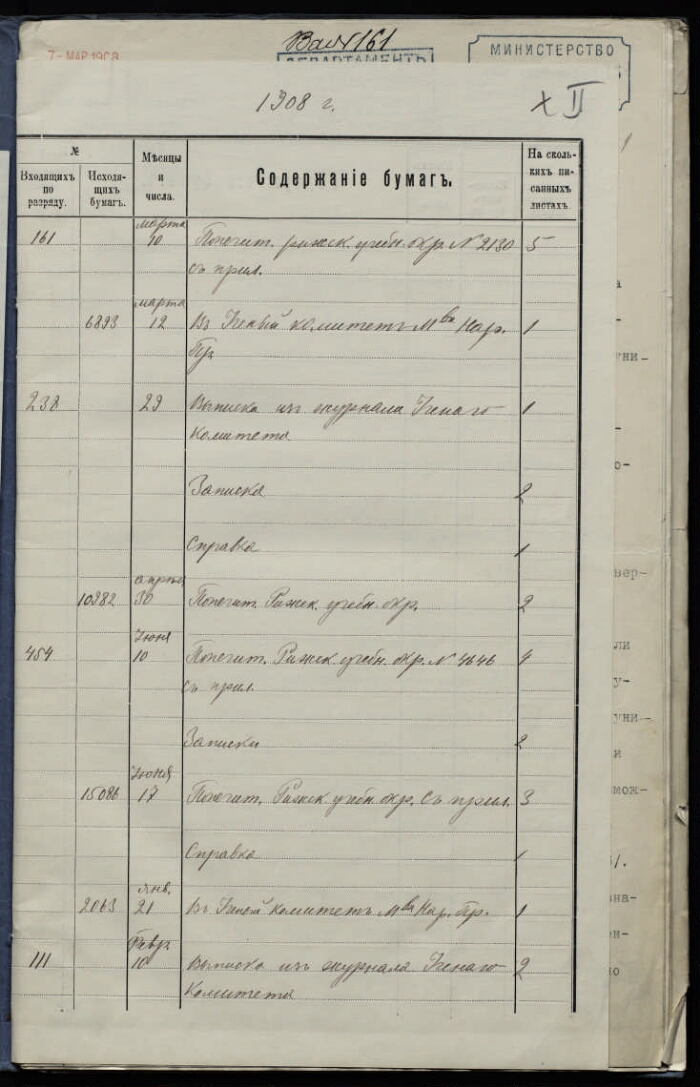 7-МАР.1908
161
ДЕПАРТАМЕНТЪ
МИНИСТЕРСТВО
1908 г.
× II
№
Входящихъ по разряду.
Исходящихъ бумагъ.
Мѣсяцы и числа.
Содержаніе бумагъ.
На сколькихъ писанныхъ листахъ.
марта
161 10 Попечит. рижск. учебн. окр. N 2130 5
съ прил.
марта
6893 12 Въ Ученый комитетъ Мва Нар. 1
Пр.
238 29 Выписка изъ журнала Ученаго 1
Комитета
Записка 2
Справка 1
апрѣл
10982 30 Попечит. Рижск. учебн. окр. 2
Іюня
454 10 Попечит. Рижск. учебн. окр. N 4646 4
съ прил.
Записки 2
Іюня
15086 17 Попечит. Рижск. учебн. окр. съ прил. 3
Справка 1
янв.
2063 21 Въ Ученый комитетъ Мва Нар. Пр. 1
Февр.
111 10 Выписка изъ журнала Ученаго 2
Комитета